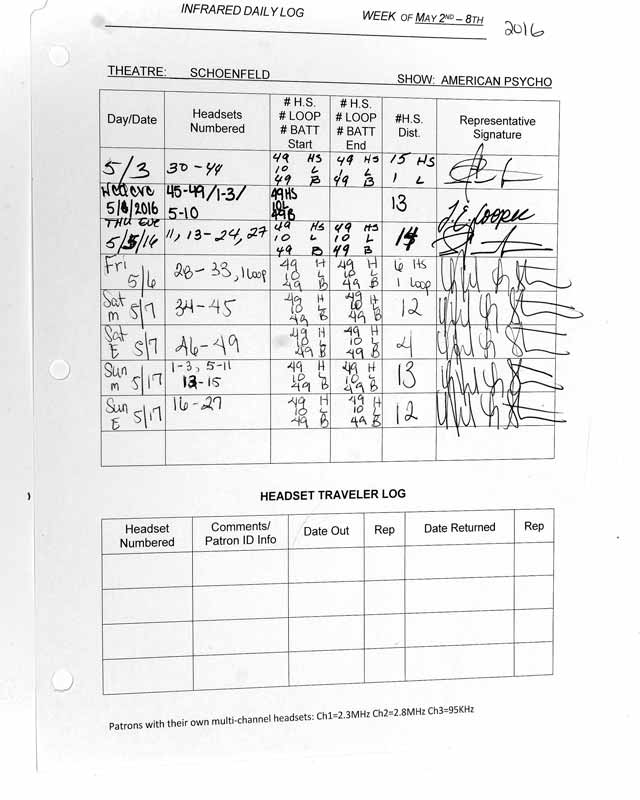 INFRARED DAILY LOG WEEK OF MAY 2ND – 8TH 2016
THEATRE: SCHOENFELD SHOW: AMERICAN PSYCHO
Day/Date Headsets Numbered # H.S. # LOOP # BATT Start # H.S. # LOOP # BATT End #H.S. Dist. Representative Signature
5/3 30-44 49 HS 10 L 49 B 49 HS 10 L 49 B 15 HS 1 L
Wed eve 5/4/2016 45-49/1-3/ 5-10 49HS 10L 49B 13 J.E. Cooper
THU EVE 5/5/16 11, 13-24, 27 49 HS 10 L 49 B 49 HS 10 L 49 B 14
Fri 5/6 28-33, 1 Loop 49 H 10 L 49 B 49 H 10 L 49 B 6 HS 1 Loop
Sat m 5/7 34-45 49 H 10 L 49 B 49 H 10 L 49 B 12
Sat E 5/7 46-49 49 H 10 L 49 B 49 H 10 L 49 B 4
Sun m 5/17 1-3, 5-11 13-15 49 H 10 L 49 B 49 H 10 L 49 B 13
Sun E 5/17 16-27 49 H 10 L 49 B 49 H 10 L 49 B 12
HEADSET TRAVELER LOG
Headset Numbered Comments/ Patron ID Info Date Out Rep Date Returned Rep
Patrons with their own multi-channel headsets: Ch1=2.3MHz Ch2=2.8MHz Ch3=95KHz